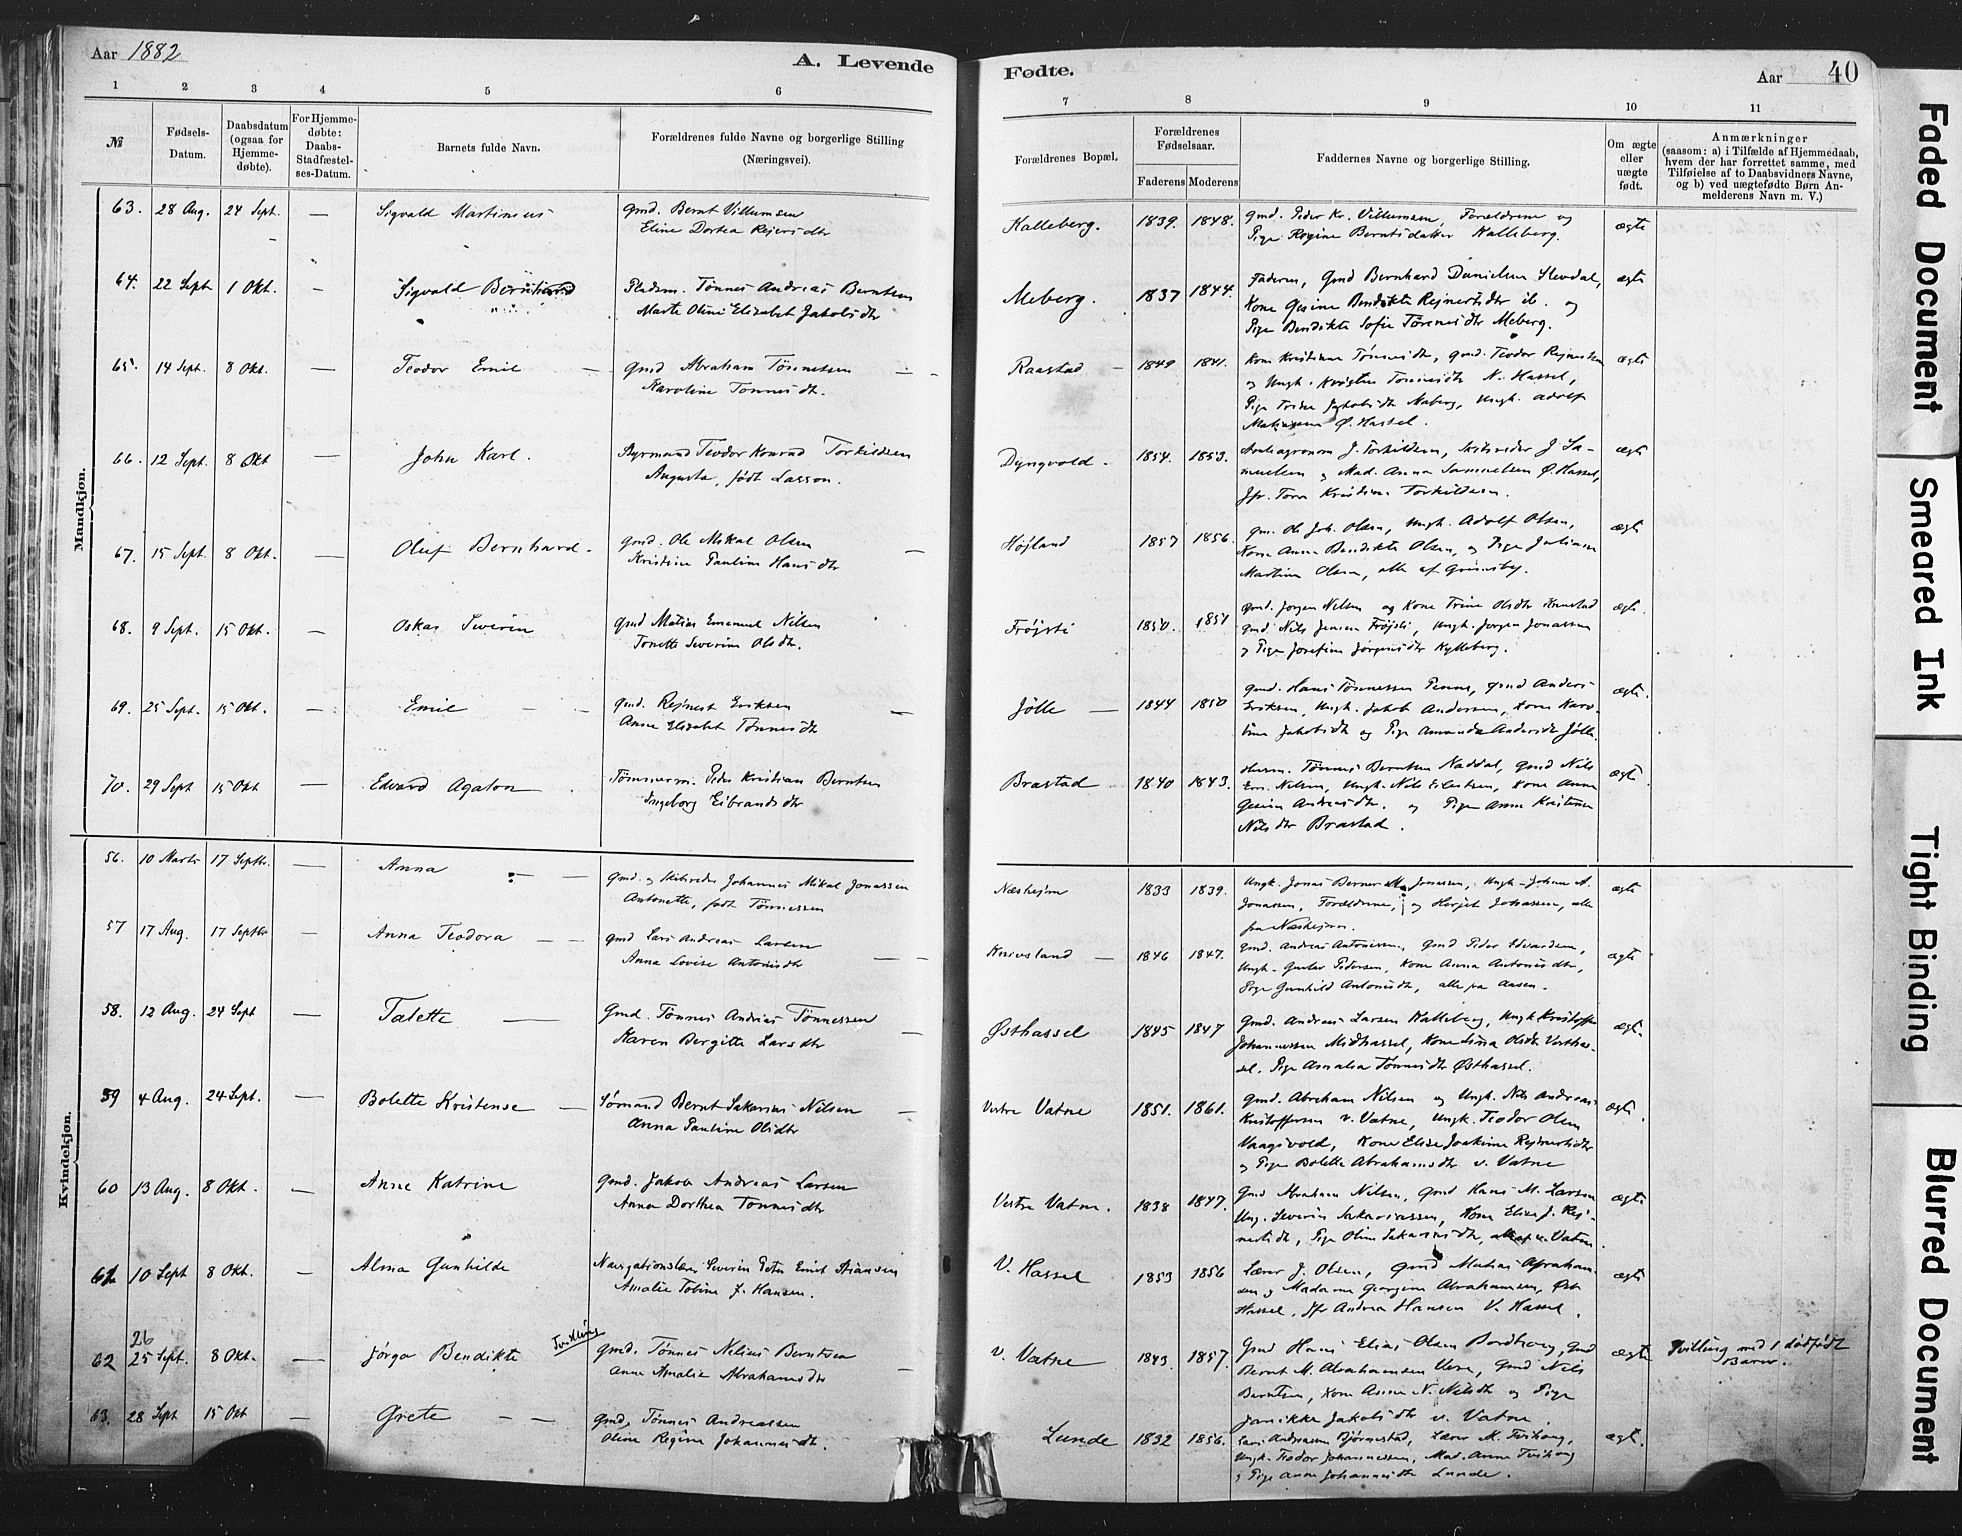 Aar 1882
A. Levende
Fødte.
Aar
40
1 2 3 4 5 6
7 8 9 10 11
№
Fødsels-
Datum.
Daabsdatum
(ogsaa for
Hjemme-
døbte).
For Hjemme-
døbte:
Daabs-
Stadfæstel-
ses-Datum.
Barnets fulde Navn.
Forældrenes fulde Navne og borgerlige Stilling
(Næringsvei).
Forældrenes Bopæl.
Forældrenes
Fødselsaar.
Faderens Moderens
Faddernes Navne og borgerlige Stilling.
Om ægte
eller
uægte
født.
Anmærkninger
(saasom: a) i Tilfælde af Hjemmedaab,
hvem der har forrettet samme, med
Tilføielse af to Daabsvidners Navne,
og b) ved uægtefødte Børn An-
melderens Navn m. V.)
Mandkjøn.
63. 28 Aug. 24 Sept. — Sigvald Martinius
Gmd. Bernt Villumsen
Eline Dortea Rejersdtr
Kalleberg. 1839. 1848.
Gmd. Peder Kr. Villumsen, Forældrene og
Pige Regine Berntsdatter Kalleberg.
ægte
64. 22 Sept 1 Okt. — Sigvald Bernhard
Pladsm. Tønnes Andreas Berntsen
Marte Oline Elisabet Jakobsdtr
Meberg. 1837 1844.
Faderen, Gmd Bernhard Danielsen
Kone Gesine Bendikte Rejnertsdtr ib. og
Pige Bendikte Sofie Tønnesdtr Meberg.
ægte
65. 14 Sept. 8 Okt. — Teodor Emil —
Gmd Abraham Tønnesen
Karoline Tønnesdt.
Raastad — 1849 1841.
Kone Kristine Tønnesdtr, Gmd. Teodor Rejnertsen
og Ungk. Kristen Tønnesdtr N. Hassel,
Pige Trine Jakobsdtr Meberg, Ungk. Adolf
Ø. Hassel.
ægte
66. 12 Sept. 8 Okt — John Karl.
Styrmand Teodor Konrad Torkildsen
Augusta, født Lassen.
Dyngvold. 1854. 1853.
J. Torkildsen, Skibsreder J. Sa-
muelsen og Mad. Anna Samuelsen Ø. Hassel,
Jfr. Tora Kristine Torkildsen.
ægte
67. 15 Sept. 8 Okt. — Oluf Bernhard.
Gmd. Ole Mikal Olsen
Kristine Pauline Hansdtr
Højland 1857 1856.
Gm. Ole Joh. Olsen, Ungk. Adolf Olsen,
Kone Anna Bendikte Olsen, og Pige Juliane
Martine Olsen, alle af Grimsby.
ægte
68. 9 Sept. 15 Okt. — Oskar Severin
Gmd Matias Emanuel Nilsen
Tonette Severine Olsdtr.
Frøjsti 1850. 1851
Gmd. Jørgen Nilsen og Kone Trine Olsdtr
Gmd. Nils Jensen Frøjsti, Ungk. Jørgen Jonassen
og Pige Josefine Jørgensdtr Kylleberg.
ægte.
69. 25 Sept. 15 Okt. — Emil — —
Gmd. Rejnert Eriksen
Anne Elisabet Tønnesdtr
Jølle — 1844 1850
Gmd. Hans Tønnessen Penne, Gmd Anders
Eriksen, Ungk. Jakob Andersen, Kone Karo-
line Jakobsdtr og Pige Amanda Andersdtr Jølle.
ægte
70. 29 Sept 15 Okt — Edvard Agaton
Tømmerm. Peder Kristian Berntsen
Ingeborg Eibrandsdtr
Brastad 1840 1843.
Husm. Tønnes Berntsen Naddal, Gmd Nils
Nilsen, Ungk. Nils Eilertsen, Kone Anne
Gesine Andreasdtr. og Pige Anne Kristense
Nilsdtr Brastad.
ægte
Kvindekjøn.
56. 10 Marts 17 Septbr. — Anna —
Gmd. og Skibsreder Johannes Mikal Jonassen
Antonette, født Tønnessen
Næshejm 1833 1839.
Ungk. Jonas Berner M. Jonassen, Ungk. Johan A.
Jonassen, Forældrene, og Herjet Johassen, alle
fra Næshejm.
ægte
57 17 Aug. 17 Septbr — Anna Teodora — —
Gmd Lars Andreas Larsen
Anna Lovise Antonisdtr
Knivsland — 1846 1847.
Gmd. Andreas Antonisen, Gmd Peder Edvardsen,
Ungk. Gustav Pedersen, Kone Anna Antonisdtr,
Pige Gunhild Antonisdt, alle paa Aasen.
ægte
58. 12 Aug. 24 Sept — Talette —
Gmd. Tønnes Andreas Tønnessen
Karen Bergitte Larsdtr
Østhassel 1845 1847
Gmd. Andreas Larsen Kalleberg, Ungk Kristoffer
Johannessen Midthassel, Kone Lina Olsdtr Vesthas-
sel. Pige Amalia Tønnesdtr Østhassel.
ægte.
59 4 Aug. 24 Sept. — Bolette Kristense —
Sømand Bernt Sakarias Nilsen
Anna Pauline Olsdtr
Vestre Vatne 1851. 1861.
Gmd. Abraham Nilsen og Ungk. Nils Andreas
Kristoffersen v. Vatne, Ungk. Teodor Olsen
Vaagsvold, Kone Elise Joakime Rejnertsdtr
og Pige Bolette Abrahamsdtr v. Vatne
ægte.
60 13 Aug. 8 Okt. — Anne Katrine
Gmd. Jakob Andreas Larsen
Anna Dorthea Tønnesdtr
Vestre Vatne. 1838 1847.
Gmd Abraham Nilsen, Gmd Hans M. Larsen
Ung. Severin Sakariassen, Kone Elise J. Rej-
nertsdt, Pige Oline Sakariasdt, alle af v. Vatne.
ægte
61 10 Sept 8 Okt. — Alma Gunhilde
Navigationslærer Severin Peter Emil Stiansen
Amalie Tobine f. Hansen.
V. Hassel 1853 1856
Lærer J. Olsen, Gmd Matias Abraham-
sen og Madame Georgine Abrahamsen, Øst
Hassel, Jfr Andrea Hansen V. Hassel.
ægte
62 26
25 Sept. 8 Okt. — Jørga Bendikte Tvilling
Gmd. Tønnes Nelius Berntsen
Anne Amalie Abrahamsdtr
v. Vatne 1843. 1857.
Gmd Hans Elias Olsen Bordhaug, Gmd
Bernt M. Abrahamsen Vere, Gmd Nils
Berntsen, Kone Anne N. Nilsdt og Pige
Janikke Jakobsdtr v. Vatne.
ægte Tvilling med 1 dødfødt
Barn.
63. 28 Sept 15 Okt — Grete — —
Gmd. Tønnes Andreassen
Oline Regine Johannesdt.
Lunde 1832 1856.
Lars Andreasen Bjørnestad, Lærer M. Tvihaug,
Ungk. Teodor Johannessen, Mad. Anne Tvihaug
og Pige Anne Johannesdtr Lunde.
ægt.
Faded Document
Smeared Ink
Tight Binding
Blurred Document